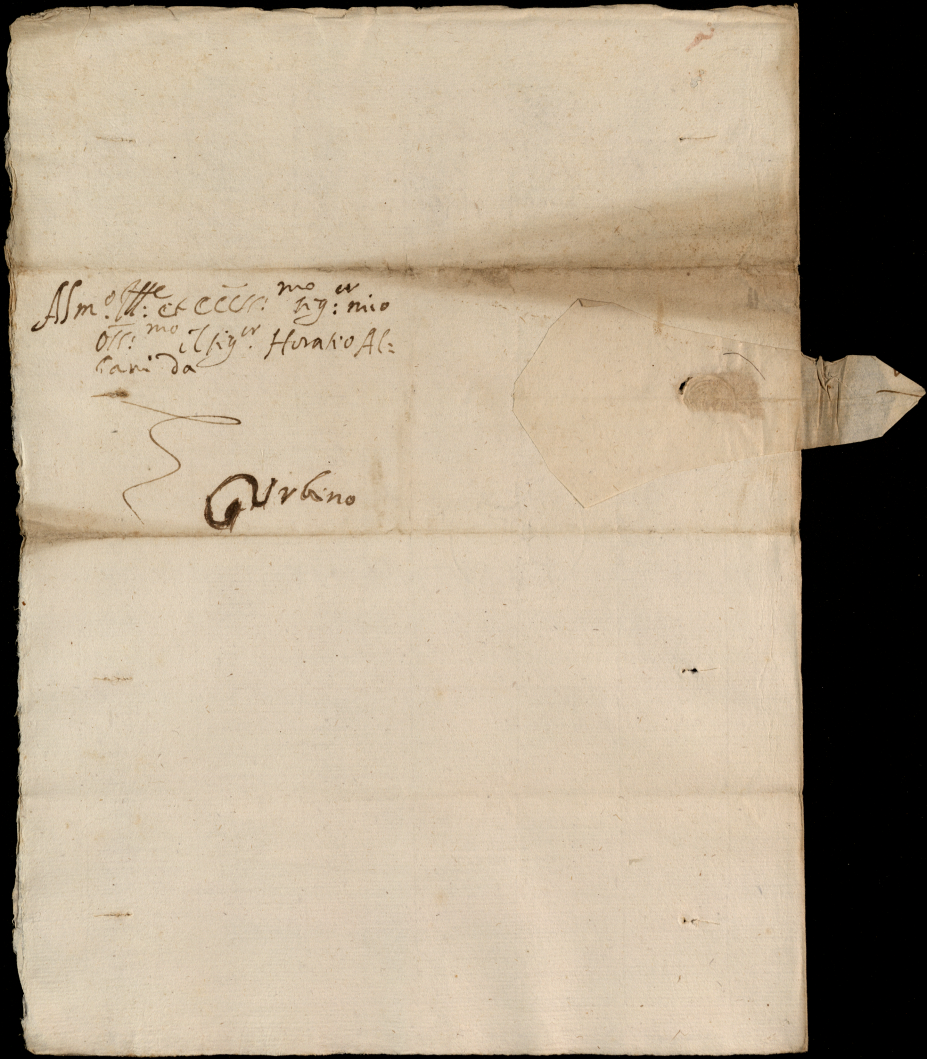 Al m:º Ill:ᵉ et ecc:ᵐᵒ sig:ᵉʳ mio
oss:ᵐᵒ il sig:ᵉʳ Horatio Al:
bani da
Urbino